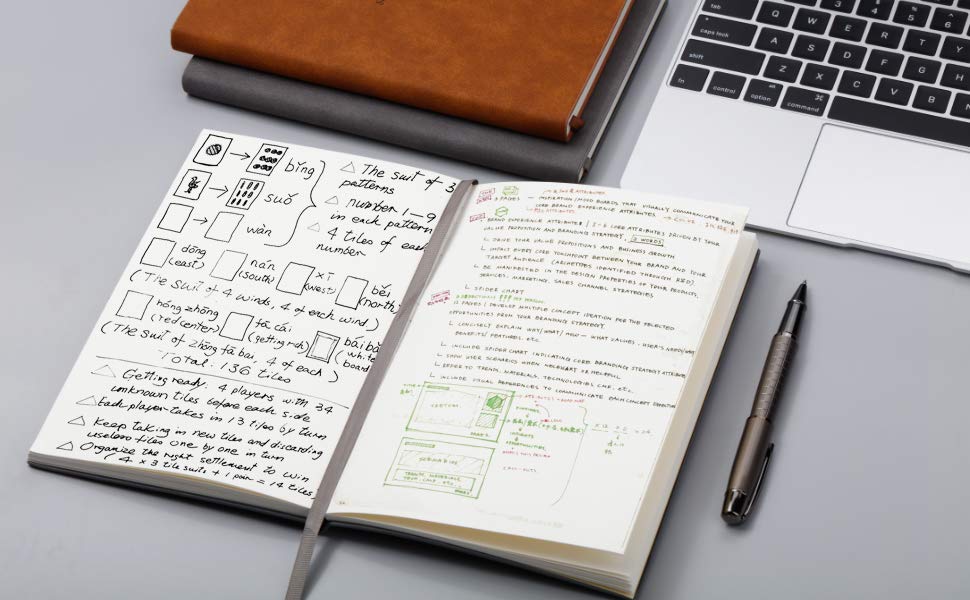 bǐng
suǒ
wàn
△ The suit of 3
patterns
△ number 1-9
in each pattern
△ 4 tiles of each
number
dōng
(east)
nán
(south)
xī
(west)
běi
(north)
(The suit of 4 winds, 4 of each wind)
hóng zhōng
(red center)
fā cái
(getting rich)
bái bǎ
(white
board)
(The suit of zhōng fā bái, 4 of each)
Total: 136 tiles
△ Getting ready. 4 players with 34
unknown tiles before each side
△ Each player takes in 13 tiles by turn
△ Keep taking in new tiles and discarding
useless tiles one by one in turn
△ Organize the right settlement to win
(4 x 3 tile suits + 1 pair = 14 tiles)
3 PAGES
- INSPIRATION/MOOD BOARDS THAT VISUALLY COMMUNICATE YOUR
CORE BRAND EXPERIENCE ATTRIBUTES
BRAND EXPERIENCE ATTRIBUTES | CORE ATTRIBUTES DRIVEN BY YOUR
VALUE PROPOSITION AND BRANDING STRATEGY, 3 WORDS
L DRIVE YOUR VALUE PROPOSITIONS AND BUSINESS GROWTH
L IMPACT EVERY CORE TOUCHPOINT BETWEEN YOUR BRAND AND YOUR
TARGET AUDIENCE (ARCHETYPES IDENTIFIED THROUGH R&D)
L BE MANIFESTED IN THE DESIGN PROPERTIES OF YOUR PRODUCTS,
SERVICES, MARKETING, SALES CHANNEL STRATEGIES
L SPIDER CHART
12 PAGES | DEVELOP MULTIPLE CONCEPT IDEATION FOR THE SELECTED
OPPORTUNITIES FROM YOUR BRANDING STRATEGY.
L CONCISELY EXPLAIN WHY/WHAT/HOW - WHAT VALUES, USER'S NEED/WHY
BENEFITS/FEATURES, ETC.
L INCLUDE SPIDER CHART INDICATING CORE BRANDING STRATEGY ATTRIBUTE
L SHOW USER SCENARIOS WHEN NECESSARY OR HELPFUL.
L REFER TO TRENDS, MATERIALS, TECHNOLOGIES, CMF, ETC.
L INCLUDE VISUAL REFERENCES TO COMMUNICATE EACH CONCEPT DIRECTION
SCENARIOS
tab Q W E R T Y
caps lock A S D F G H
shift Z X C V B N
fn control option command